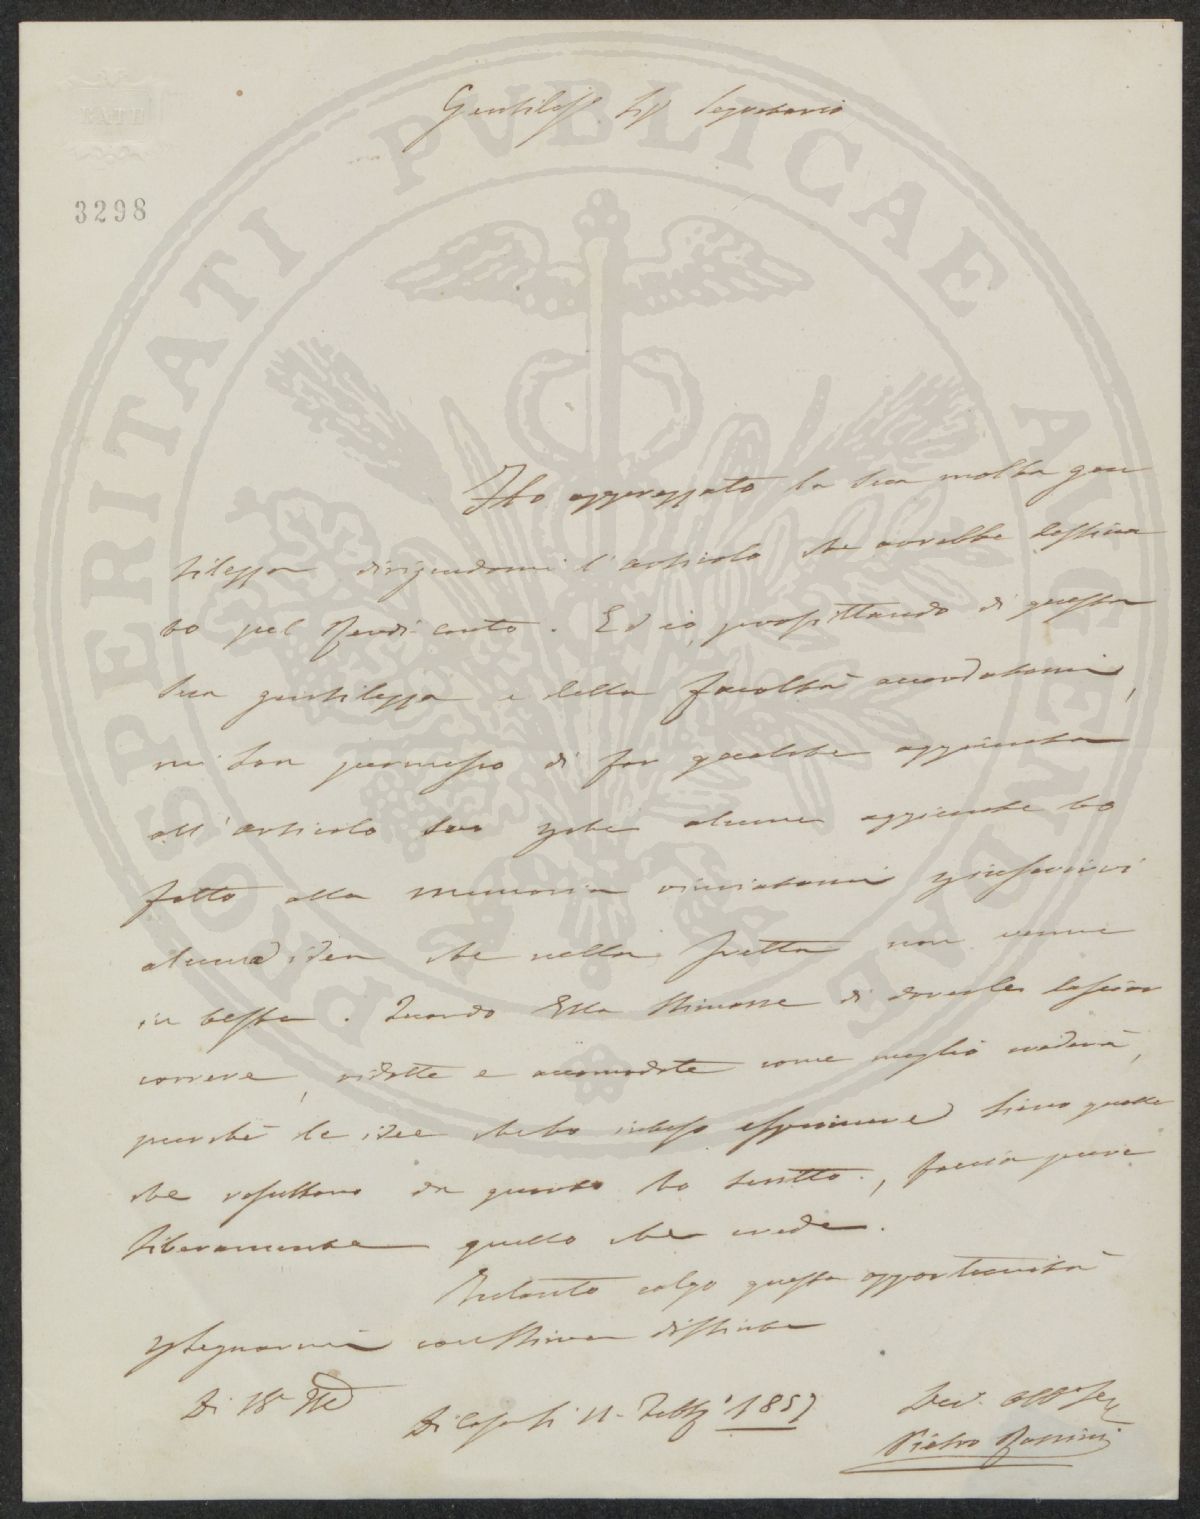 Gentiliss. Sig. Segretario
3298
PROSPERITATI PVBLICAE AVGENDAE
Ho apprezzato la sua molta gen
tilezza dirigendomi l'articolo che avrebbe destina
to pel Rendiconto. Ed io, profittando di questa
sua gentilezza e della facoltà accordatami,
mi son permesso di far qualche aggiunta
all'articolo suo alcune aggiunte ho
fatto alla memoria rinviatami
alcuna idea che nella fretta non venne
in testa. Quando Ella stimasse di doverle lasciar
correre, ridotte e accomodate come meglio crederà,
purché le idee che ho inteso esprimere sieno quelle
che risultano da quanto ho scritto, faccia pure
liberamente quello che crede.
Intanto colgo questa opportunità
segnarmi con stima distinta
Di
Di Casa li 11. 1857
Dev. Obb. Se
Pietro